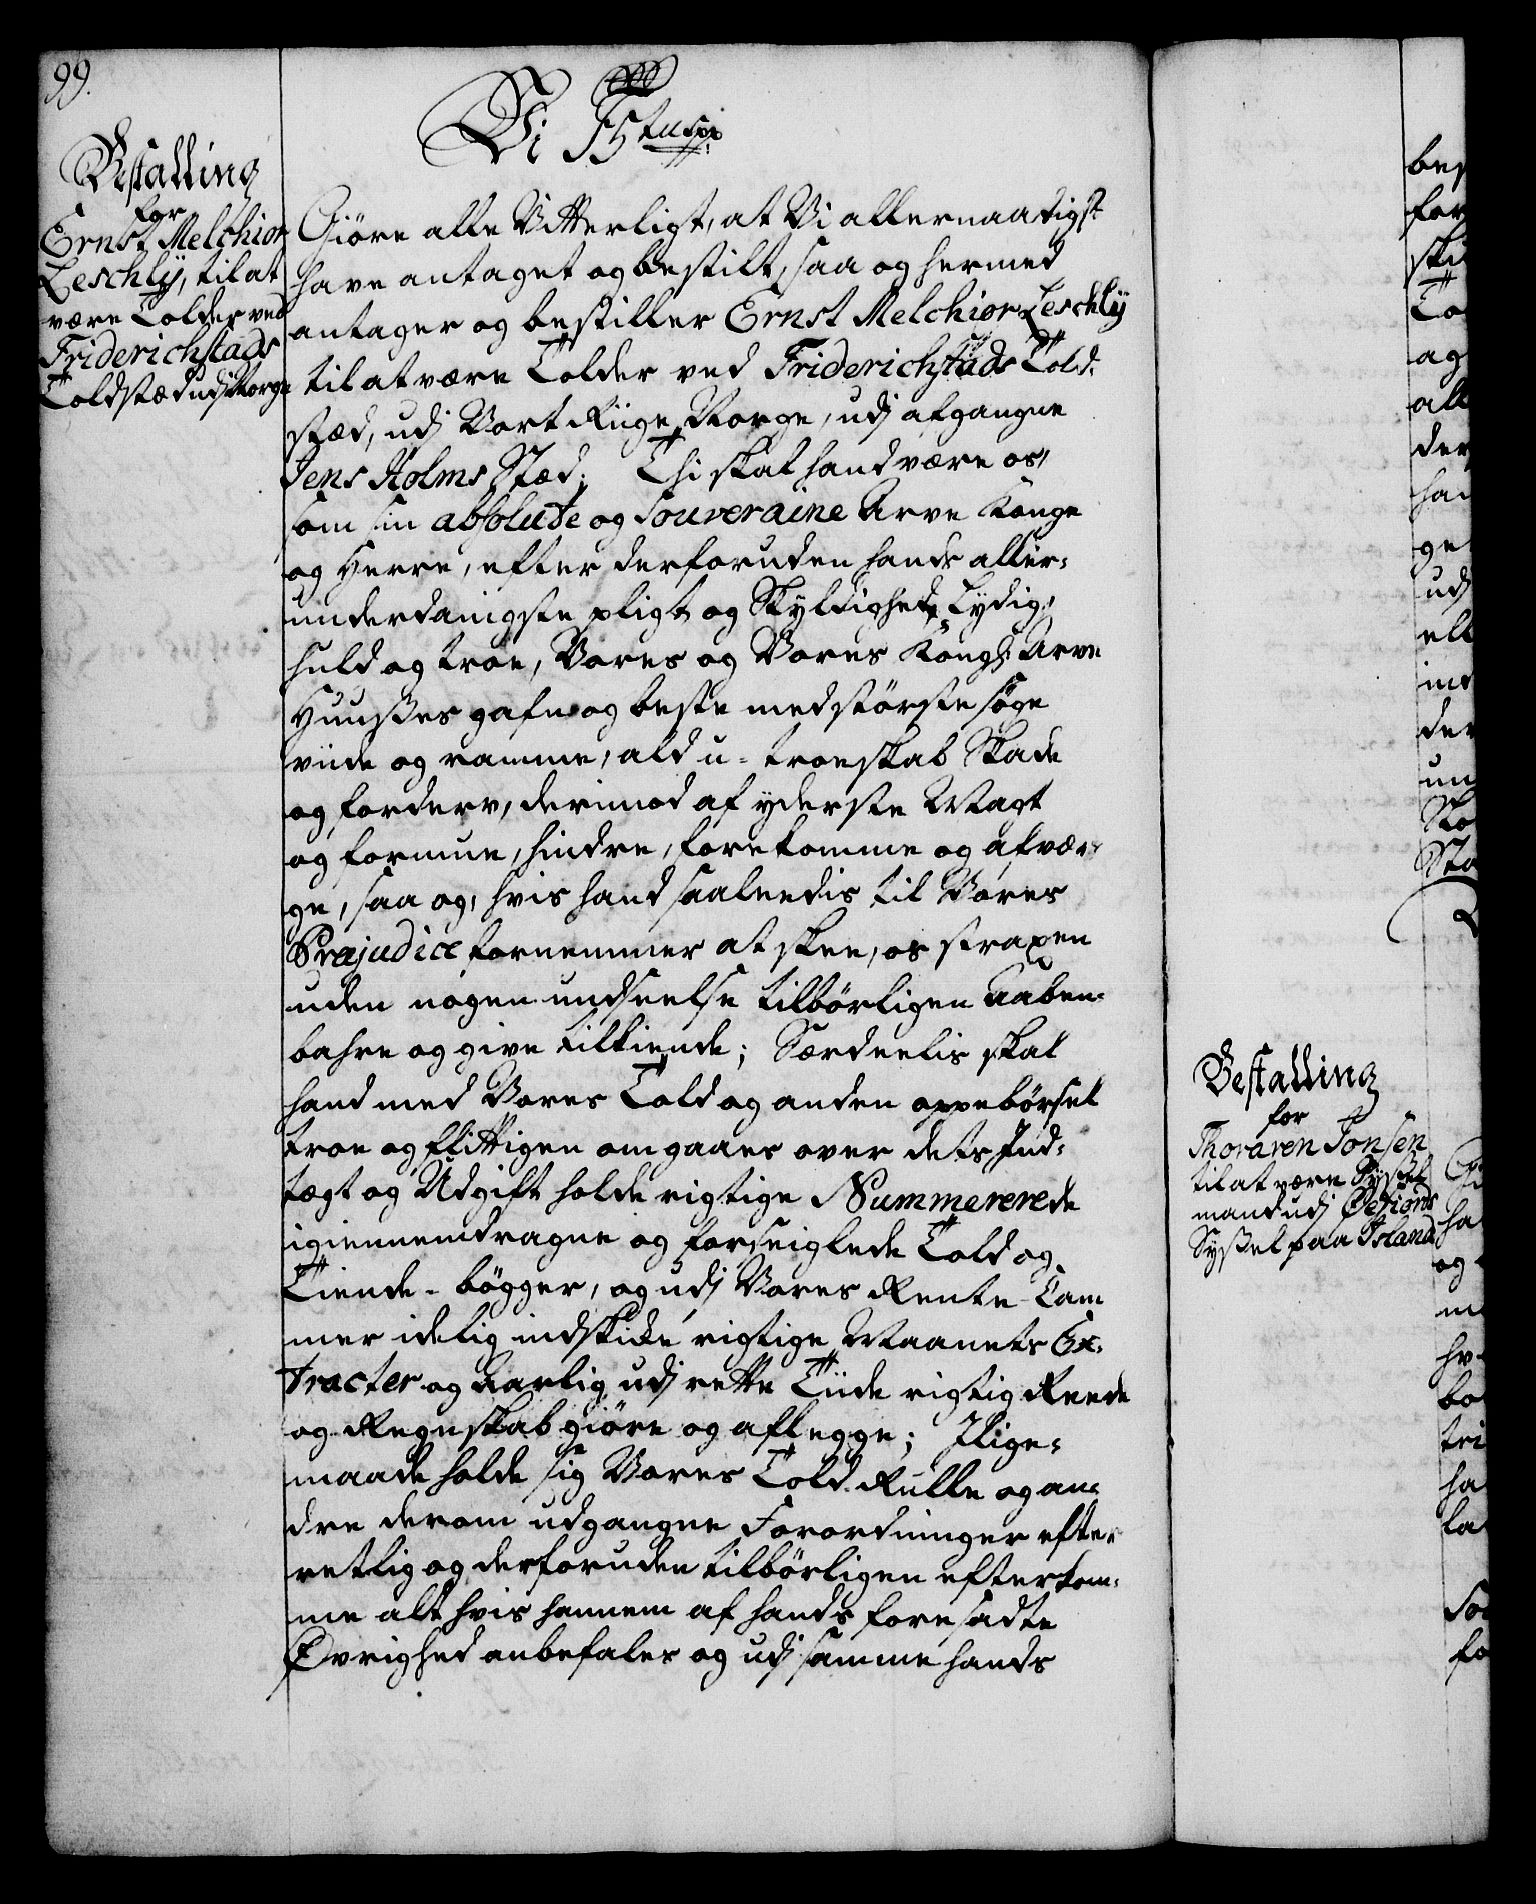 99.
Bestalling
for
Ernst Melchior
Leschlÿ, til at
være Tolder ved
Friderichstads
Toldstæd udj Norge
Vi
Giöre alle Vitterligt, at Vi allernaadigst
have antaget og bestilt, saa og hermed
antager og bestiller Ernst Melchior Leschlÿ
til at være Tolder ved Friderichstads Told-
stæd, udj Vort Riige Norge, udj afgangne
Jens Holms Stæd; Thi skal hand være os,
som sin absolute og Souveraine Arve Konge
og Herre, efter derforuden hands aller-
underdanigste pligt og Skyldighed, Lydig,
huld og troe, Vores og Vores Kongl: Arve
Huußes gafn og beste med störste söge
viide og ramme, ald u-troeskab Skade
og forderv, derimod af yderste Magt
og formue, hindre, forekomme og afvær-
ge, saa og, hvis hand saaleedis til Vores
Præjudice fornemmer at skee, os straxen
uden nogen undseelse tilbörligen aaben-
bahre og give tilkiende; Særdeelis skal
hand med Vores Told og anden oppebörsel
troe og flittigen omgaaes over dets Ind-
tægt og Udgift holde rigtige Nummererede
igiennemdragne og forseiglede Told og
Tiende-bögger, og udj Vores Rente-Cam-
mer idelig indskicke rigtige Maanets Ex-
tracter og aarlig udj rette Tiide rigtig Reede
og Regnskab giöre og aflegge; Ilige-
maade holde sig Vores Told-Rulle og an-
dre derom udgangne Forordninger efter-
retlig og derforuden tilbörligen efterkom-
me alt hvis hannem af hands foresadte
Övrighed anbefales og udj samme hands
Bestalling
for
Thoraren Jonsen
til at være Sÿßel
mand udj
Sÿßel paa Island